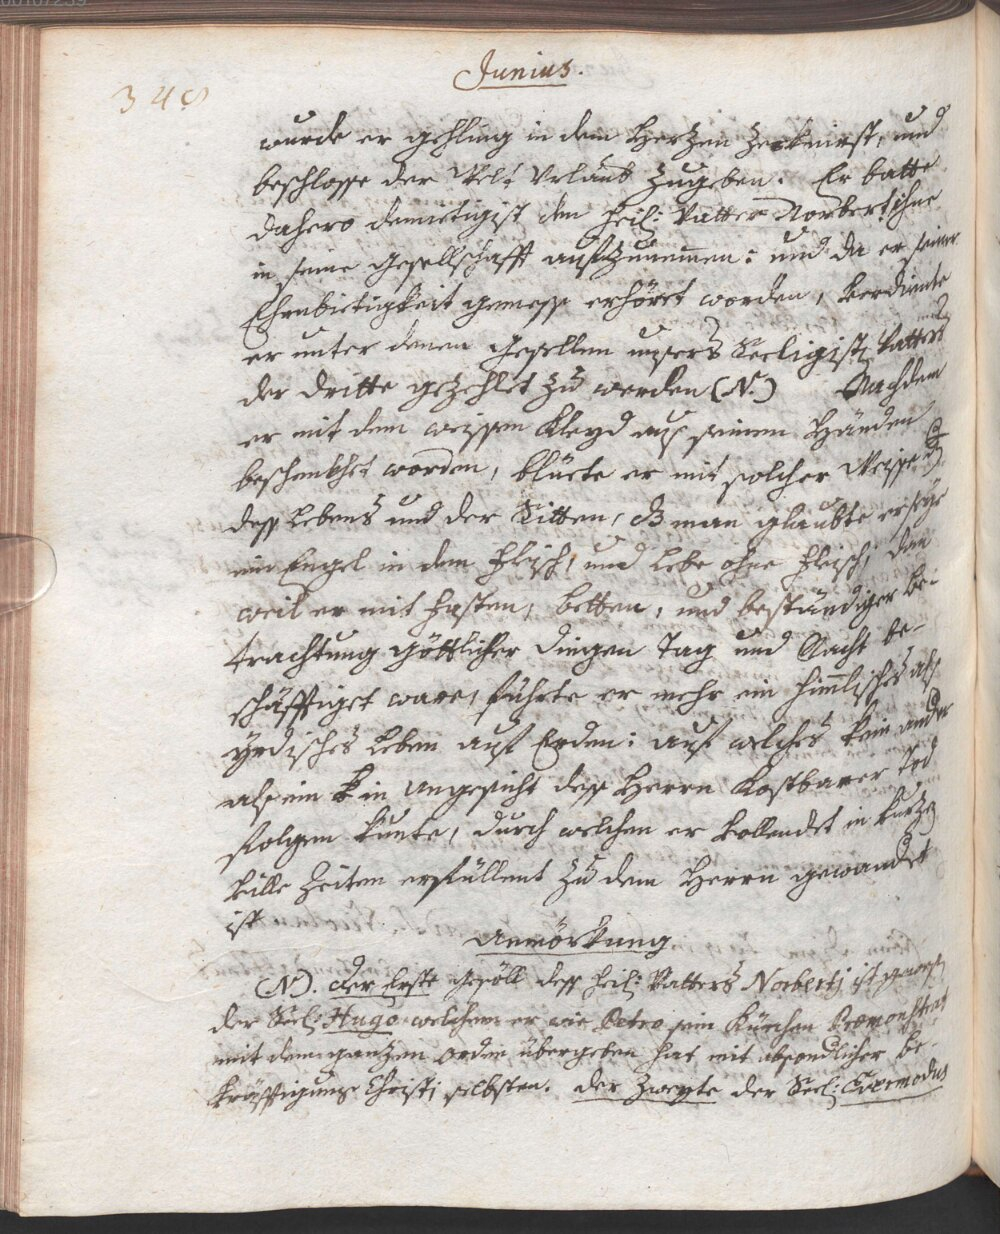 Junius.
348
wurde er gehling in dem Hertzen zerknirst, und
beschlosse der Welt Urlaub zugeben. Er batte
dahero demietigist den Heil: Vatter Norbert: ihne
in seine Gesellschafft auffzunemmen: und da er seiner
Ehrnbietigkeit gemesse erhöret worden, verdiente
er unter denen Gesellen unsers Seeligist: Vatters
der dritte gezehlet zu werden (N.) Nachdem
er mit dem weissen Kleyd auß seinen Händen
beschenkhet worden, blüete er mit solcher Weisse
deß Lebens und der Sitten, dz man glaubte er seye
ein Engel in dem Fleisch, und lebe ohne Fleisch, dan
weil er mit fasten, betten, und beständiger be-
trachtung göttlicher Dingen Tag und Nacht be-
schäfftiget ware, führte er mehr ein himlisches alß
yrdisches Leben auff Erden: auff welches kein ander
alß ein in Angesicht deß Herrn kostbarer Tod
folgen kunte, durch welchen er vollendet in kurtze
ville Zeiten erfüllent zu dem Herrn gewandet
ist
Anmörkung
(N). Der Erste Gesöll deß Heil: Vatters Norberti ist gewesen
der Seel: Hugo welchem er wie Petro sein Kürchen Præmonstrat
mit dem ganzen Orden übergeben hat mit absondlicher Be-
kräfftigung Christi selbsten. der Zweyte der Seel: Evermodus